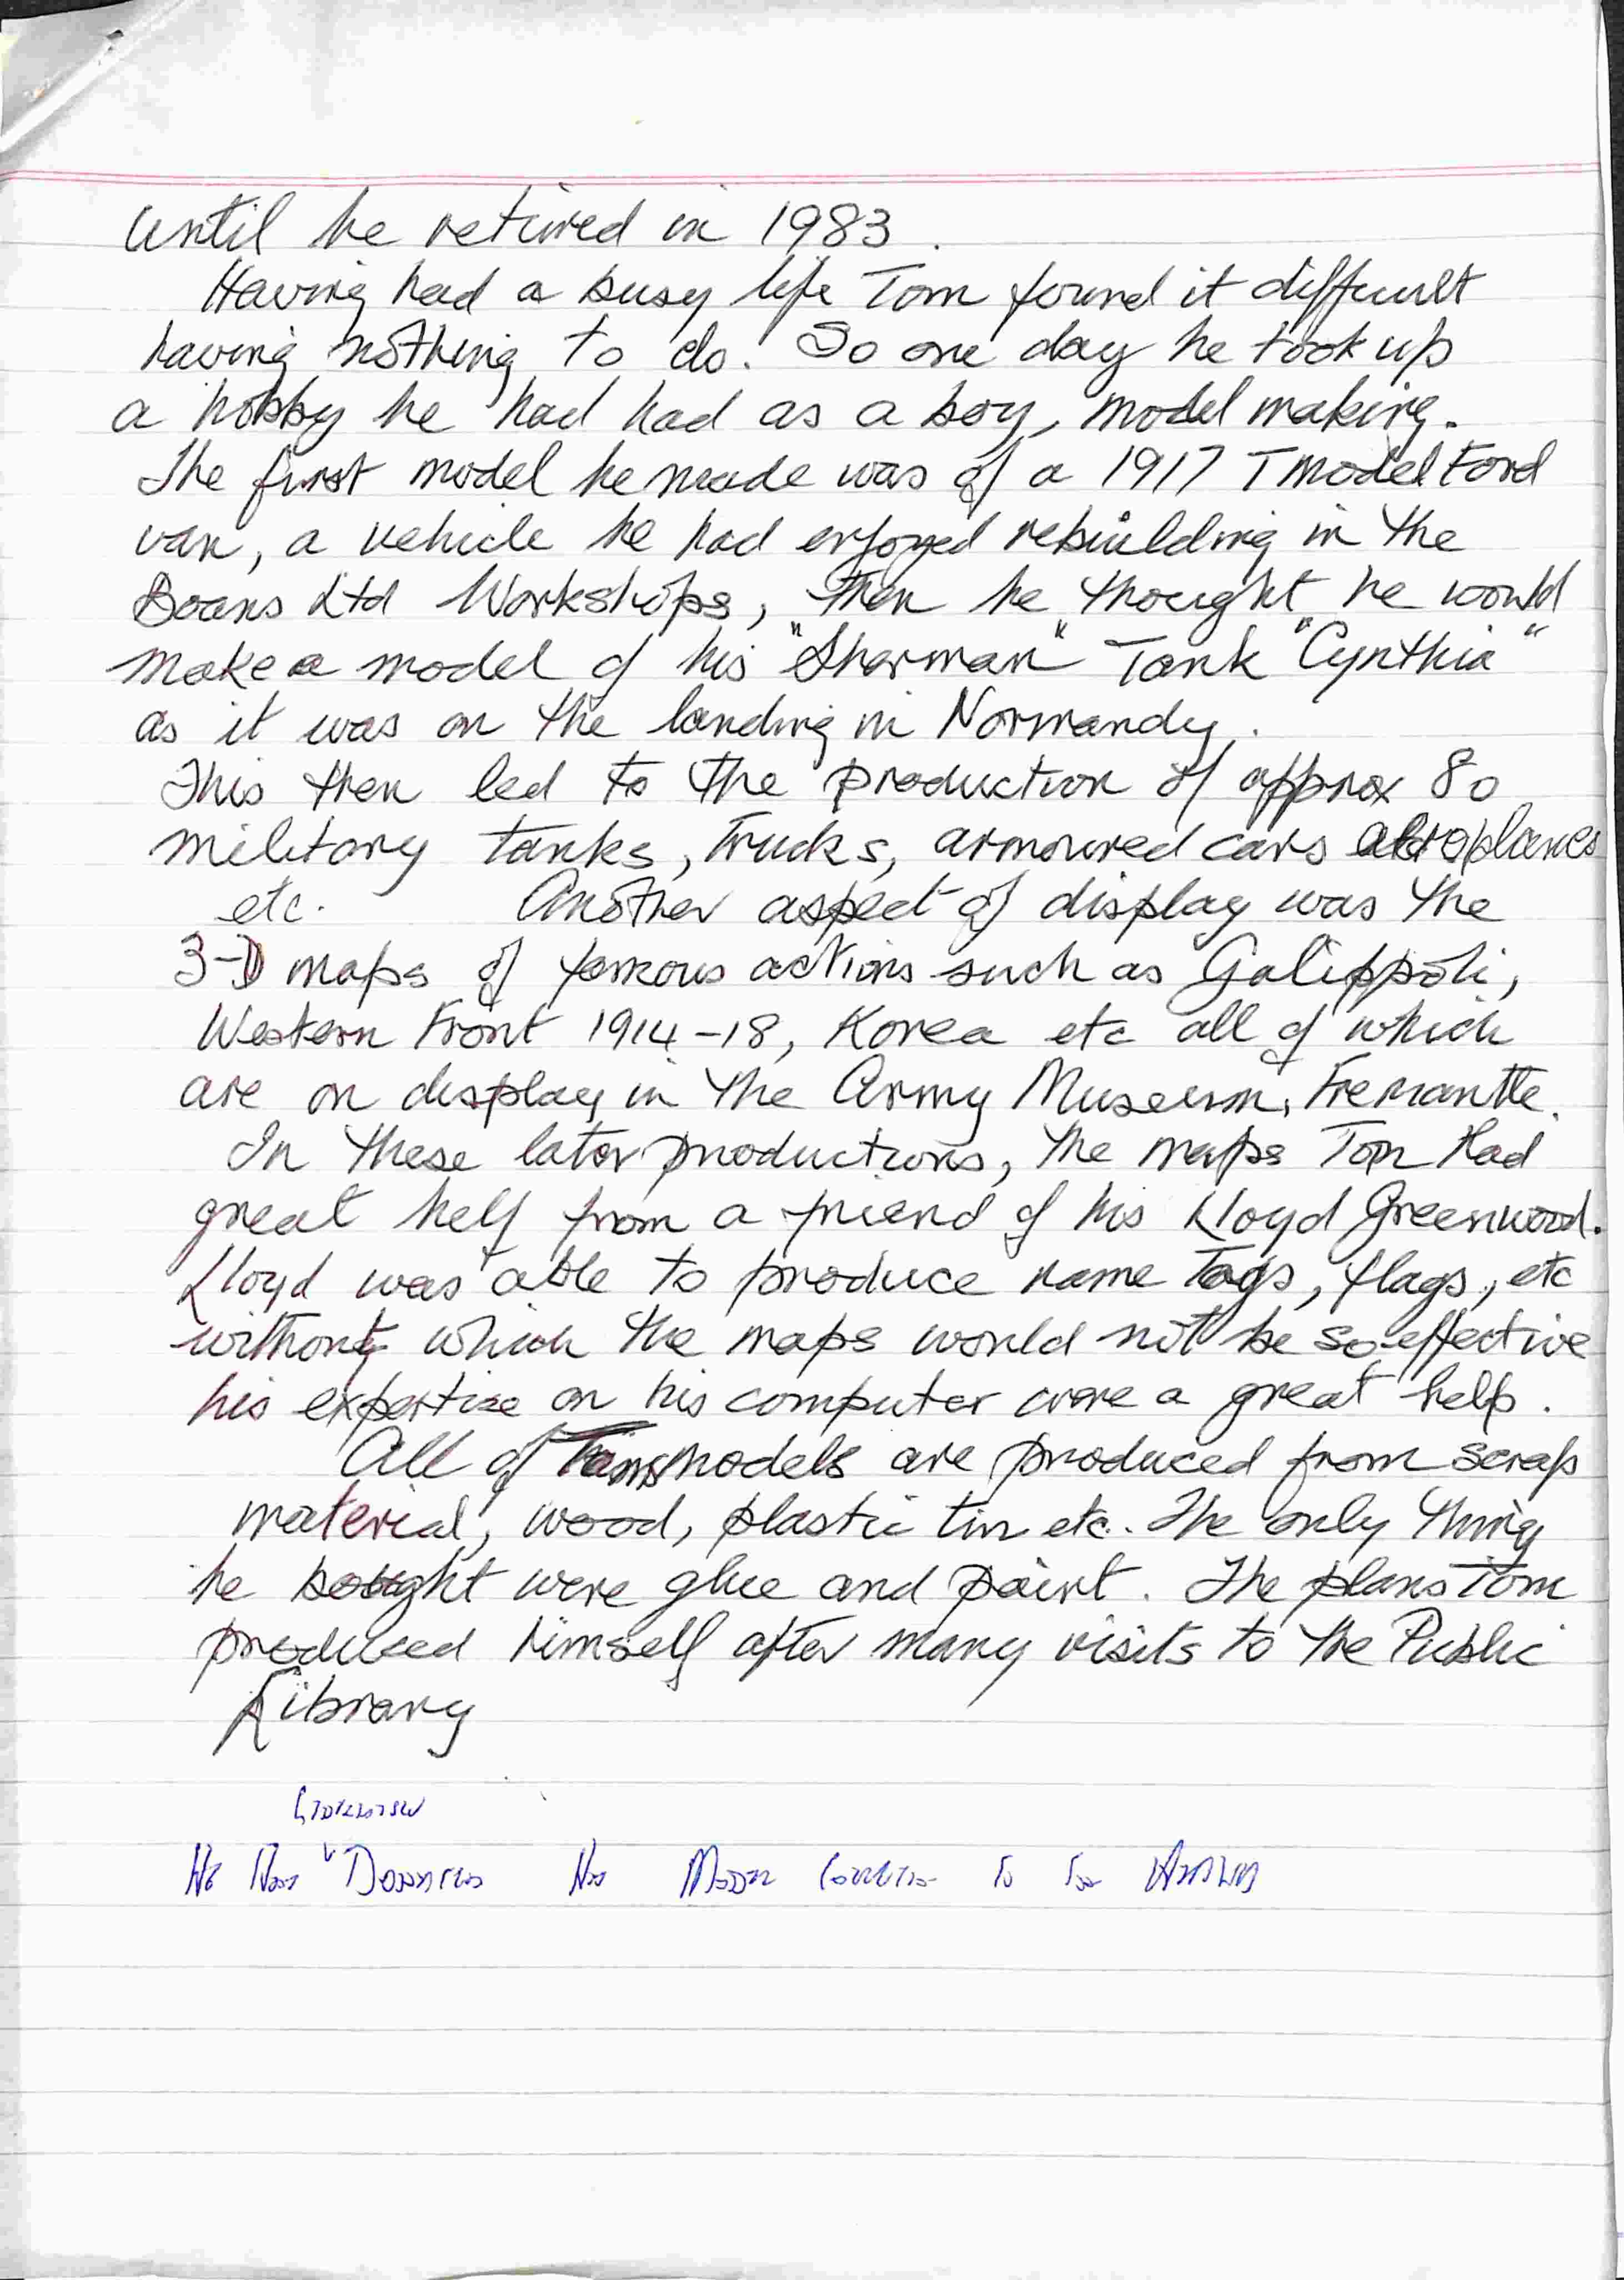 until he retired in 1983.
Having had a busy life Tom found it difficult
having nothing to do. So one day he took up
a hobby he had had as a boy, model making.
The first model he made was of a 1917 T Model Ford
van, a vehicle he had enjoyed rebuilding in the
Boans Ltd Workshops, then he thought he would
make a model of his "Sherman" Tank "Cynthia"
as it was on the landing in Normandy.
This then led to the production of approx 80
military tanks, trucks, armoured cars aeroplanes
etc. Another aspect of display was the
3-D maps of famous actions such as Galippoli,
Western Front 1914-18, Korea etc all of which
are on display in the Army Museum, Fremantle.
In these later productions, the maps Tom Had
great help from a friend of his Lloyd Greenwood.
Lloyd was able to produce name Tags, flags, etc
without which the maps would not be so effective
his expertise on his computer were a great help.
All of Toms models are produced from scrap
material, wood, plastic tin etc. The only thing
he bought were glue and paint. The plans Tom
produced himself after many visits to the Public
Library
He Has Donated His Model Collection to